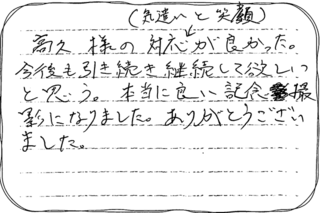 (気遣いと笑顔)
高久様の対応が良かった。
今後も引き続き継続して欲しい
と思う。本当に良い記念撮
影になりました。ありがとうござい
ました。